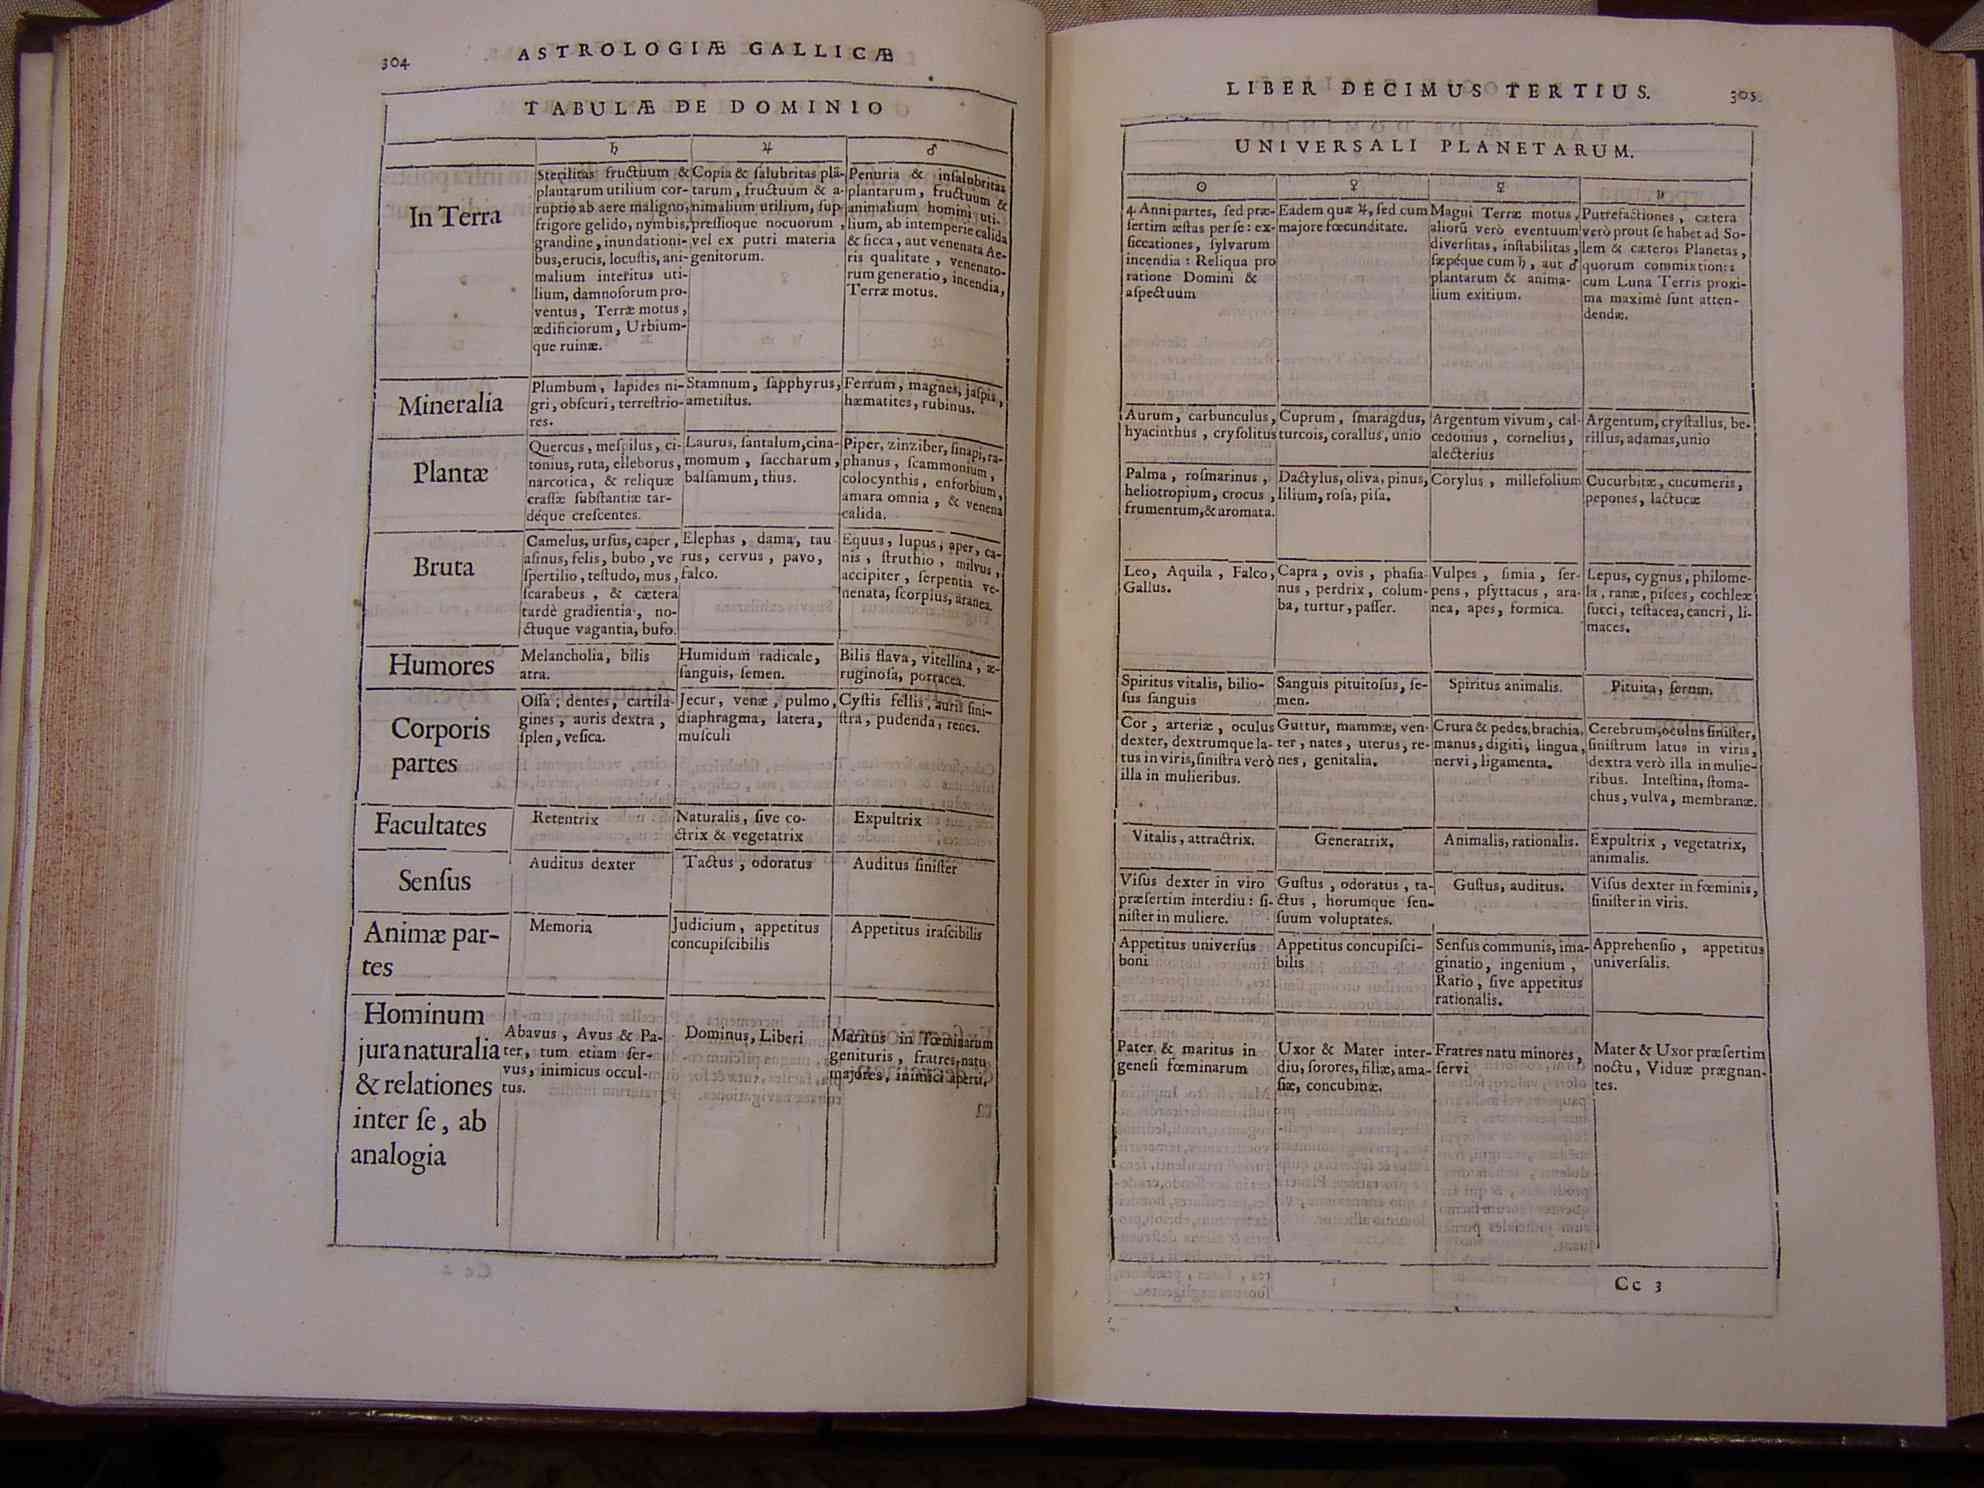 304
ASTROLOGIÆ GALLICÆ
TABULÆ DE DOMINIO
♄
♃
♂
In Terra
Sterilitas fructuum &
plantarum utilium cor-
ruptio ab aere maligno,
frigore gelido, nymbis,
grandine, inundationi-
bus, erucis, locustis, ani-
malium interitus uti-
lium, damnosorum pro-
ventus, Terræ motus,
ædificiorum, Urbium-
que ruinæ.
Copia & salubritas plā-
tarum, fructuum & a-
nimalium utilium, sup-
pressioque nocuorum,
vel ex putri materia
genitorum.
Penuria & insalubritas
plantarum, fructuum &
animalium homini uti-
lium, ab intemperie calida
& sicca, aut venenata Ae-
ris qualitate, venenato-
rum generatio, incendia,
Terræ motus.
Mineralia
Plumbum, lapides ni-
gri, obscuri, terrestrio-
res.
Stamnum, sapphyrus,
ametistus.
Ferrum, magnes, jaspis,
hæmatites, rubinus.
Plantæ
Quercus, mespilus, ci-
tonius, ruta, elleborus,
narcotica, & reliquæ
crassæ substantiæ tar-
déque crescentes.
Laurus, santalum, cina-
momum, saccharum,
balsamum, thus.
Piper, zinziber, sinapi, ra-
phanus, scammonium,
colocynthis, enforbium,
amara omnia, & venena
calida.
Bruta
Camelus, ursus, caper,
asinus, felis, bubo, ve
spertilio, testudo, mus,
scarabeus, & cætera
tardè gradientia, no-
ctuque vagantia, bufo.
Elephas, dama, tau
rus, cervus, pavo,
falco.
Equus, lupus, aper, ca-
nis, struthio, milvus,
accipiter, serpentia ve-
nenata, scorpius, aranea.
Humores
Melancholia, bilis
atra.
Humidum radicale,
sanguis, semen.
Bilis flava, vitellina, æ-
ruginosa, porracea.
Corporis
partes
Ossa, dentes, cartila-
gines, auris dextra,
splen, vesica.
Jecur, venæ, pulmo,
diaphragma, latera,
musculi
Cystis fellis, auris sini-
stra, pudenda, renes.
Facultates
Retentrix
Naturalis, sive co-
ctrix & vegetatrix
Expultrix
Sensus
Auditus dexter
Tactus, odoratus
Auditus sinister
Animæ par-
tes
Memoria
Judicium, appetitus
concupiscibilis
Appetitus irascibilis
Hominum
jura naturalia
& relationes
inter se, ab
analogia
Abavus, Avus & Pa-
ter, tum etiam ser-
vus, inimicus occul-
tus.
Dominus, Liberi
Maritus in Fœminarum
genituris, fratres, natu
majores, inimici aperti,
LIBER DECIMUS TERTIUS.
305
UNIVERSALI PLANETARUM.
☉
♀
☿
☽
4. Anni partes, sed præ-
sertim æstas per se: ex-
siccationes, sylvarum
incendia: Reliqua pro
ratione Domini &
aspectuum
Eadem quæ ♃, sed cum
majore fœcunditate.
Magni Terræ motus,
aliorū verò eventuum
diversitas, instabilitas,
sæpéque cum ♄, aut ♂
plantarum & anima-
lium exitium.
Putrefactiones, cætera
verò prout se habet ad So-
lem & cæteros Planetas,
quorum commixtiones
cum Luna Terris proxi-
ma maximè sunt atten-
dendæ.
Aurum, carbunculus,
hyacinthus, crysolitus
Cuprum, smaragdus,
turcois, corallus, unio
Argentum vivum, cal-
cedonius, cornelius,
alecterius
Argentum, crystallus, be-
rillus, adamas, unio
Palma, rosmarinus,
heliotropium, crocus,
frumentum, & aromata.
Dactylus, oliva, pinus,
lilium, rosa, pisa.
Corylus, millefolium
Cucurbitæ, cucumeris,
pepones, lactucæ
Leo, Aquila, Falco,
Gallus.
Capra, ovis, phasia-
nus, perdrix, colum-
ba, turtur, passer.
Vulpes, simia, ser-
pens, psyttacus, ara-
nea, apes, formica.
Lepus, cygnus, philome-
la, ranæ, pisces, cochleæ
succi, testacea, cancri, li-
maces.
Spiritus vitalis, bilio-
sus sanguis
Sanguis pituitosus, se-
men.
Spiritus animalis.
Pituita, serum.
Cor, arteriæ, oculus
dexter, dextrumque la-
tus in viris, sinistra verò
illa in mulieribus.
Guttur, mammæ, ven-
ter, nates, uterus, re-
nes, genitalia.
Crura & pedes, brachia,
manus, digiti, lingua,
nervi, ligamenta.
Cerebrum, oculus sinister,
sinistrum latus in viris,
dextra verò illa in mulie-
ribus. Intestina, stoma-
chus, vulva, membranæ.
Vitalis, attractrix.
Generatrix,
Animalis, rationalis.
Expultrix, vegetatrix,
animalis.
Visus dexter in viro
præsertim interdiu: si-
nister in muliere.
Gustus, odoratus, ta-
ctus, horumque sen-
suum voluptates.
Gustus, auditus.
Visus dexter in fœminis,
sinister in viris.
Appetitus universus
boni
Appetitus concupisci-
bilis
Sensus communis, ima-
ginatio, ingenium,
Ratio, sive appetitus
rationalis.
Apprehensio, appetitus
universalis.
Pater & maritus in
genesi fœminarum
Uxor & Mater inter-
diu, sorores, filiæ, ama-
siæ, concubinæ.
Fratres natu minores,
servi
Mater & Uxor præsertim
noctu, Viduæ prægnan-
tes.
Cc 3